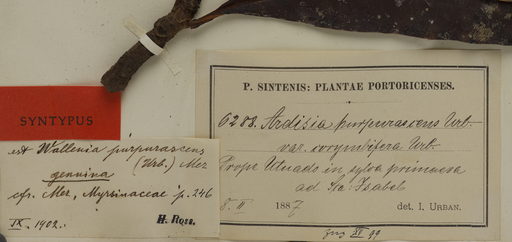 P. SINTENIS: PLANTAE PORTORICENSES.
6288. Ardisia purpurascens Urb.
var. corymbifera Urb.
Prope Utuado in sylva primaeva
ad Sta: Isabel
8. II 1887 det. I. URBAN.
SYNTYPUS
est Wallenia purpurascens
(Urb.) Mez
genuina
cfr. Mez, Myrsinaceae p. 246
IX. 1902. H. Ross.